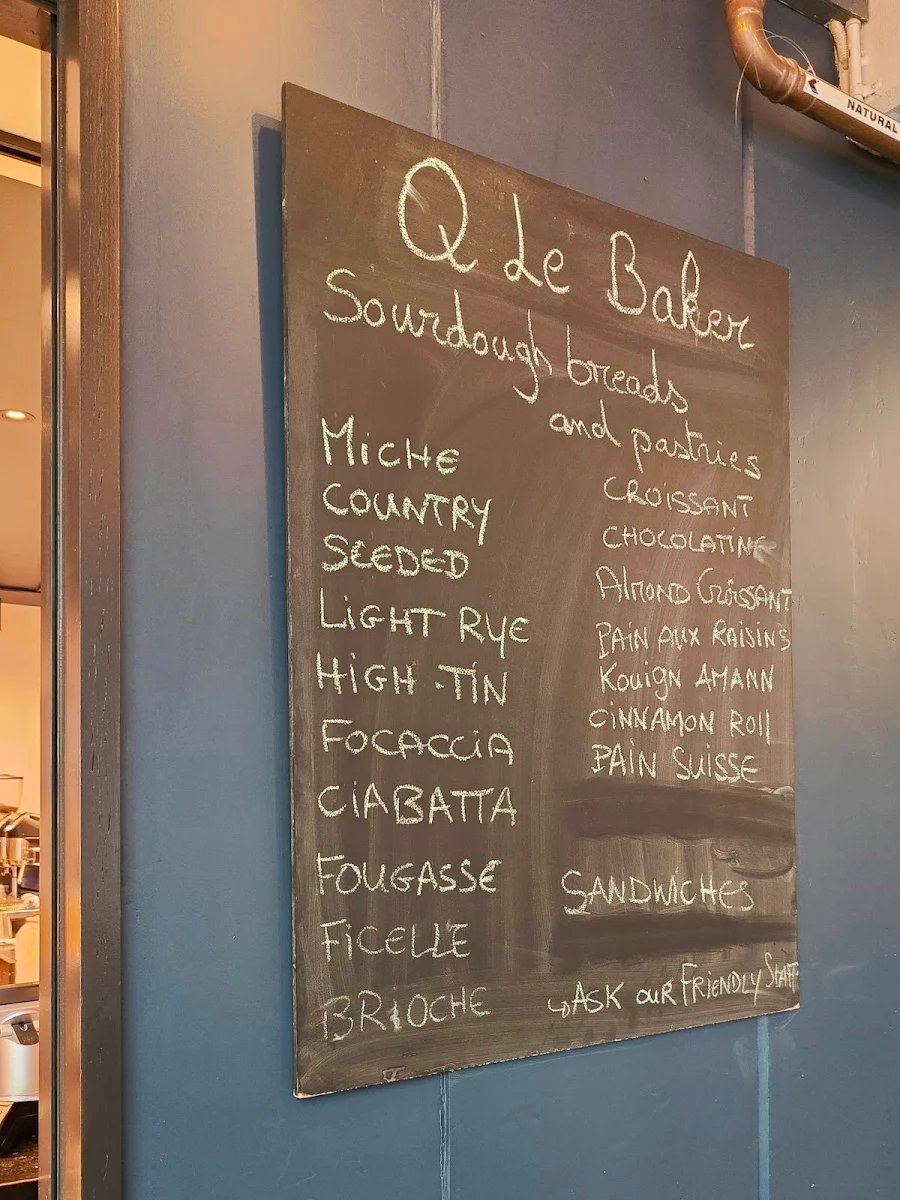 NATURAL
Q Le Baker
Sourdough breads
and pastries
MiCHE
COUNTRY
SEEDED
LiGHT RYE
HiGH-TiN
FOCACCiA
CiABATTA
FOUGASSE
FiCELLE
BRiOCHE
CROiSSANT
CHOCOLATiNE
AlMOND CROiSSANT
PAiN AUX RAiSiNS
KouiGN AMANN
CiNNAMON ROll
PAiN SUiSSE
SANDWiCHES
↳ASK OUR FRiENDLY STAFF